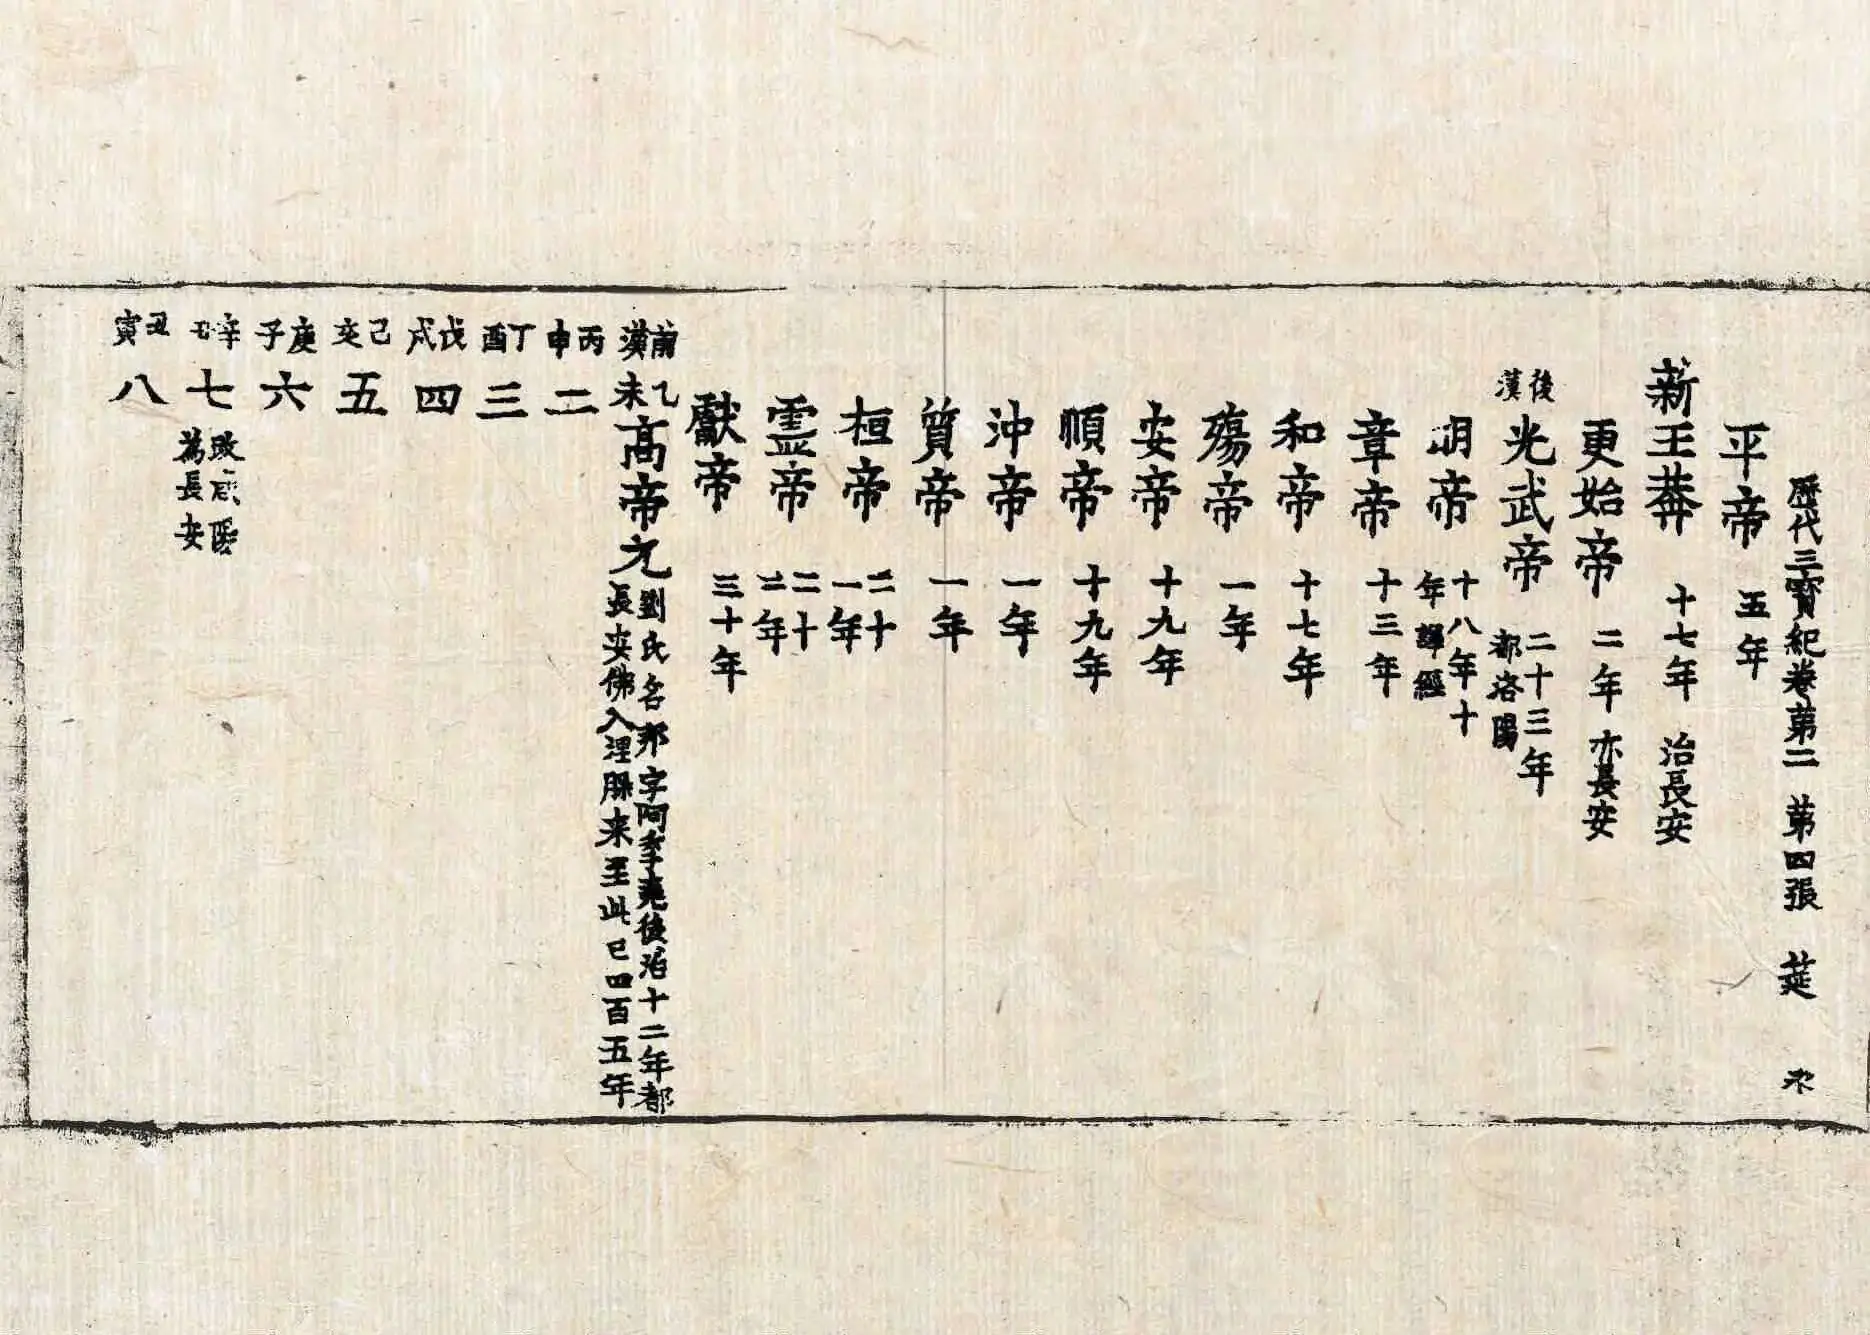 歷代三寶紀卷第二 第四張 莚
平帝 五年
新王莽 十七年 治長安
更始帝 二年 亦長安
後漢光武帝 二十三年都洛陽
明帝 十八年十年譯經
章帝 十三年
和帝 十七年
殤帝 一年
安帝 十九年
順帝 十九年
沖帝 一年
質帝 一年
桓帝 二十一年
靈帝 二十二年
獻帝 三十年
前漢乙未高帝元劉氏名邦字阿季堯後治十二年都長安佛入涅槃来至此已四百五年
丙申二
丁酉三
戊戌四
己亥五
庚子六
辛丑七改咸陽為長安
寅八